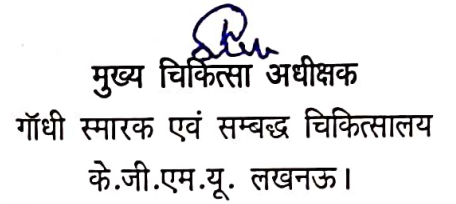 मुख्य चिकित्सा अधीक्षक
गॉधी स्मारक एवं सम्बद्ध चिकित्सालय
के.जी.एम.यू. लखनऊ।